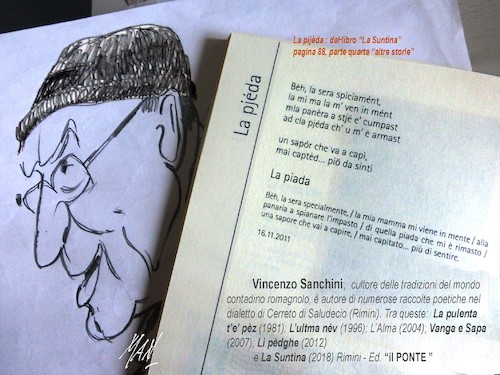 La pijèda : dal libro "La Suntina"
pagina 88, parte quarta "altre storie"
La pjéda
Bèh, la sera spiciamént,
la mi ma la m' ven in mént
mla panèra a stjé e' cumpast
ad cla pjéda ch' u m' è armast
un sapór che va a capì,
mai captèd... piö da sintì
La piada
Bèh, la sera specialmente, / la mia mamma mi viene in mente / alla
panaria a spianare l'impasto / di quella piada che mi è rimasto /
una sapore che va a capire, / mai capitato... più di sentire.
16.11.2011
Vincenzo Sanchini, cultore delle tradizioni del mondo
contadino romagnolo, è autore di numerose raccolte poetiche nel
dialetto di Cerreto di Saludecio (Rimini). Tra queste: La pulenta
t'e' pèz (1981); L'ultma név (1996); L'Alma (2004); Vanga e Sapa
(2007), Li pèdghe (2012)
e La Suntina (2018) Rimini - Ed. "il PONTE"
MAN